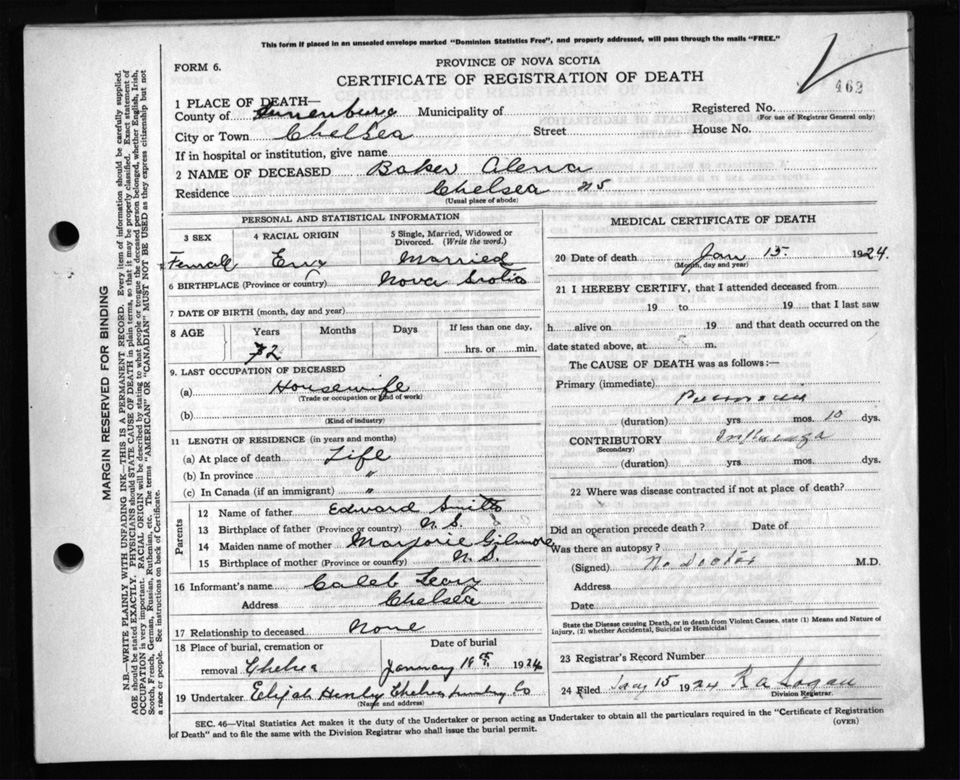 This form if placed in an unsealed envelope marked "Dominion Statistics Free", and properly addressed, will pass through the mails "FREE."
FORM 6.
PROVINCE OF NOVA SCOTIA
CERTIFICATE OF REGISTRATION OF DEATH
462
1 PLACE OF DEATH—
County of Lunenburg Municipality of Registered No. (For use of Registrar General only)
City or Town Chelsea Street House No.
If in hospital or institution, give name
2 NAME OF DECEASED Baker Alena
Residence Chelsea N S
(Usual place of abode)
PERSONAL AND STATISTICAL INFORMATION
3 SEX 4 RACIAL ORIGIN 5 Single, Married, Widowed or Divorced. (Write the word.)
Female Eng Married
6 BIRTHPLACE (Province or country) Nova Scotia
7 DATE OF BIRTH (month, day and year)
8 AGE Years Months Days If less than one day,
72 hrs. or min.
9. LAST OCCUPATION OF DECEASED
(a) Housewife
(Trade or occupation or kind of work)
(b)
(Kind of industry)
11 LENGTH OF RESIDENCE (in years and months)
(a) At place of death Life
(b) In province "
(c) In Canada (if an immigrant) "
Parents
12 Name of father Edward Smith
13 Birthplace of father (Province or country) N. S.
14 Maiden name of mother Marjorie Gilmore
15 Birthplace of mother (Province or country) N. S.
16 Informant's name Caleb Leary
Address Chelsea
17 Relationship to deceased None
18 Place of burial, cremation or Date of burial
removal Chelsea January 19 1924
19 Undertaker Elijah Henly Chelsea Lunenburg Co
(Name and address)
MEDICAL CERTIFICATE OF DEATH
20 Date of death Jan 15. 1924.
(Month, day and year)
21 I HEREBY CERTIFY, that I attended deceased from
19 to 19 that I last saw
h alive on 19 and that death occurred on the
date stated above, at m.
The CAUSE OF DEATH was as follows:—
Primary (immediate)
Pneumonia
(duration) yrs mos. 10 dys.
CONTRIBUTORY Influenza
(Secondary)
(duration) yrs mos. dys.
22 Where was disease contracted if not at place of death?
Did an operation precede death? Date of
Was there an autopsy?
(Signed) No Doctor M.D.
Address
Date
State the Disease causing Death, or in death from Violent Causes, state (1) Means and Nature of
Injury, (2) whether Accidental, Suicidal or Homicidal
23 Registrar's Record Number
24 Filed Jany 15 1924 R A Logan
Division Registrar.
SEC. 46—Vital Statistics Act makes it the duty of the Undertaker or person acting as Undertaker to obtain all the particulars required in the "Certificate of Registration
of Death" and to file the same with the Division Registrar who shall issue the burial permit.
(OVER)
MARGIN RESERVED FOR BINDING
N.B.—WRITE PLAINLY WITH UNFADING INK—THIS IS A PERMANENT RECORD. Every item of information should be carefully supplied.
AGE should be stated EXACTLY. PHYSICIANS should STATE CAUSE OF DEATH in plain terms, so that it may be properly classified. Exact statement of
OCCUPATION is very important. RACIAL ORIGIN will be described by stating to what people or tongue the deceased person belonged, whether English, Irish,
Scotch, French, German, Russian, Ruthenian, etc. The terms "AMERICAN" OR "CANADIAN" MUST NOT BE USED as they express citizenship but not
a race or people. See instructions on back of Certificate.